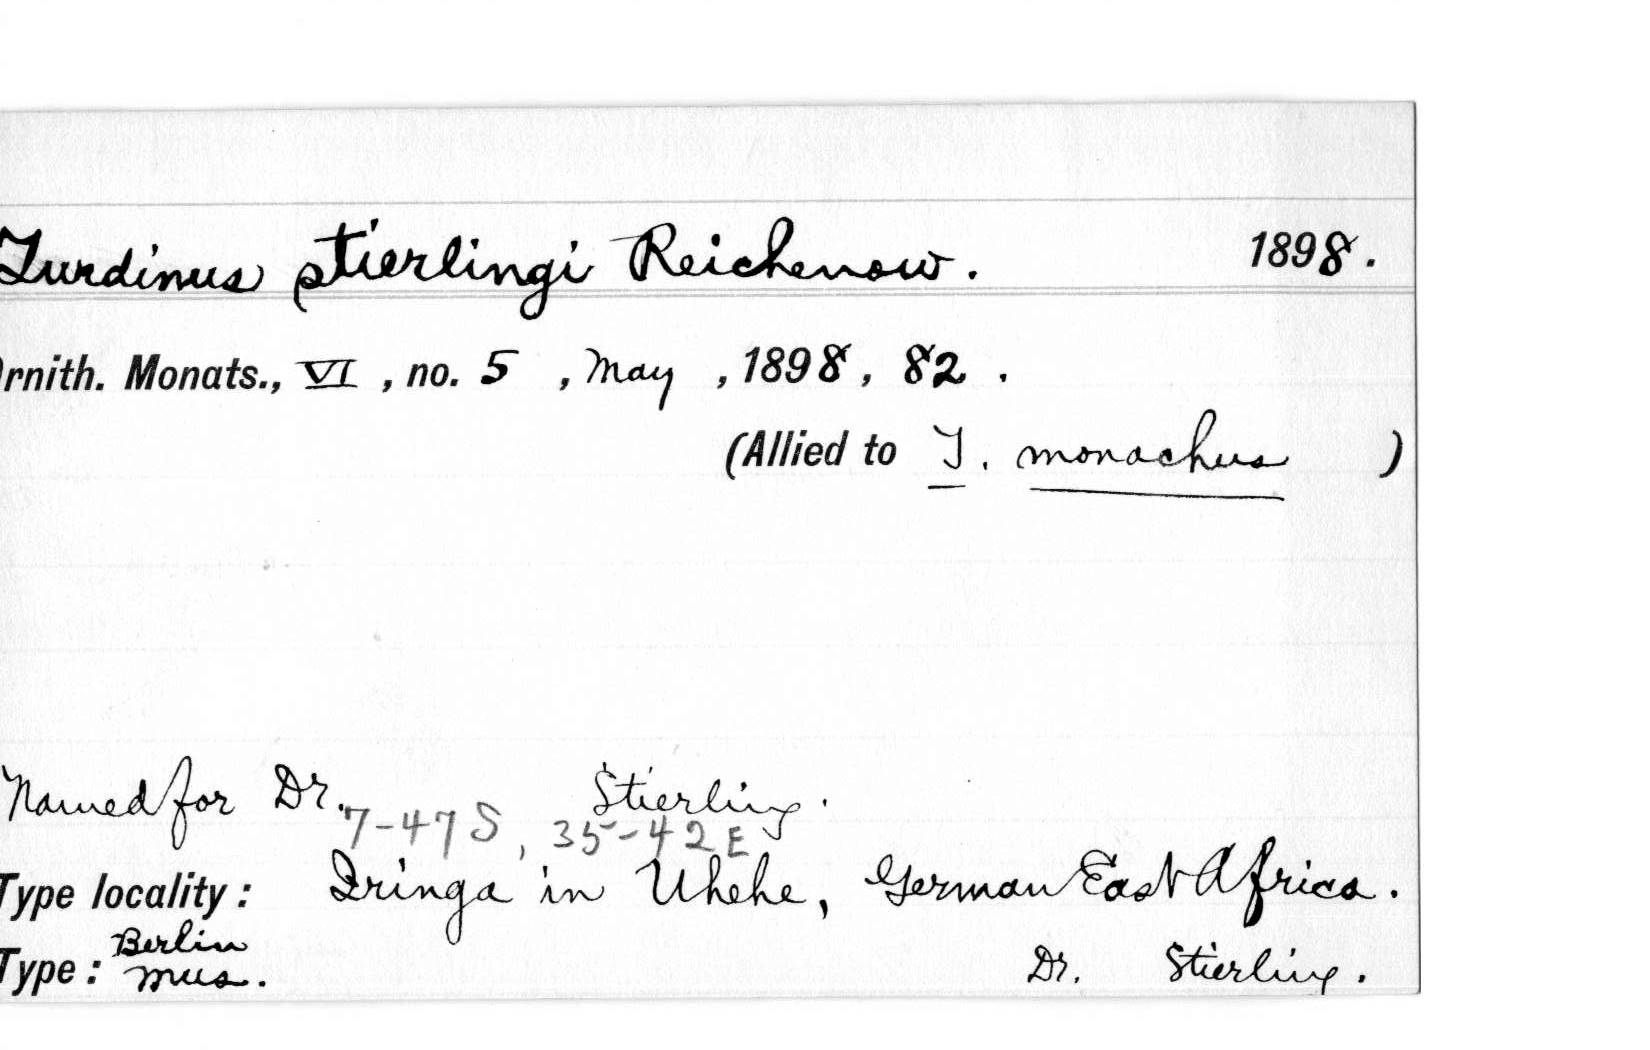 Turdinus stierlingi Reichenow. 1898.
Ornith. Monats., VI, no. 5, May, 1898, 82.
(Allied to T. monachus)
Named for Dr. Stierling.
7-47 S, 35-42 E
Type locality: Iringa in Uhehe, German East Africa.
Type: Berlin Mus. Dr. Stierling.